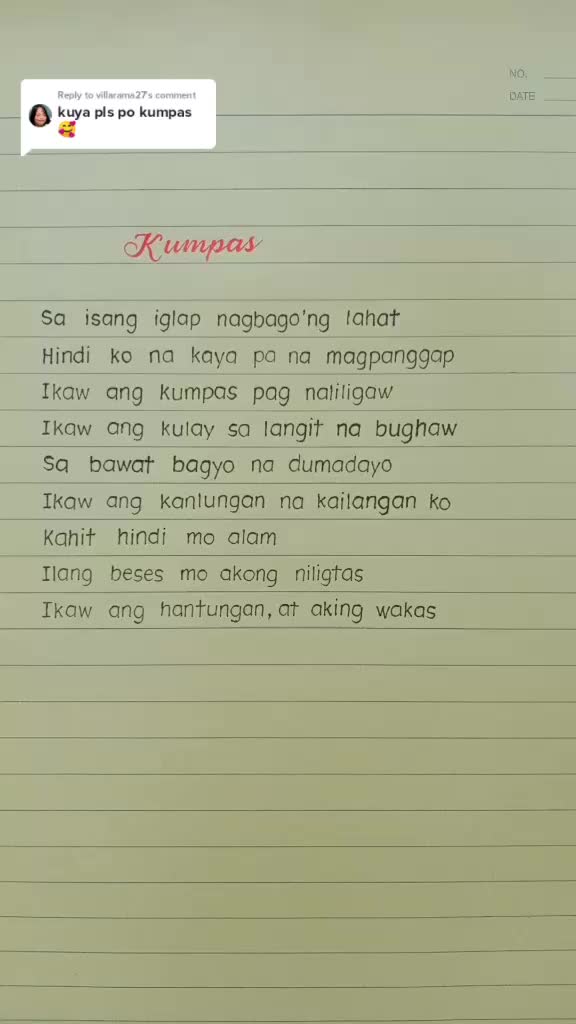 NO.
DATE
Reply to villarama27's comment
kuya pls po kumpas
🥰
Kumpas
Sa isang iglap nagbago'ng lahat
Hindi ko na kaya pa na magpanggap
Ikaw ang kumpas pag naliligaw
Ikaw ang kulay sa langit na bughaw
Sa bawat bagyo na dumadayo
Ikaw ang kanlungan na kailangan ko
Kahit hindi mo alam
Ilang beses mo akong niligtas
Ikaw ang hantungan, at aking wakas